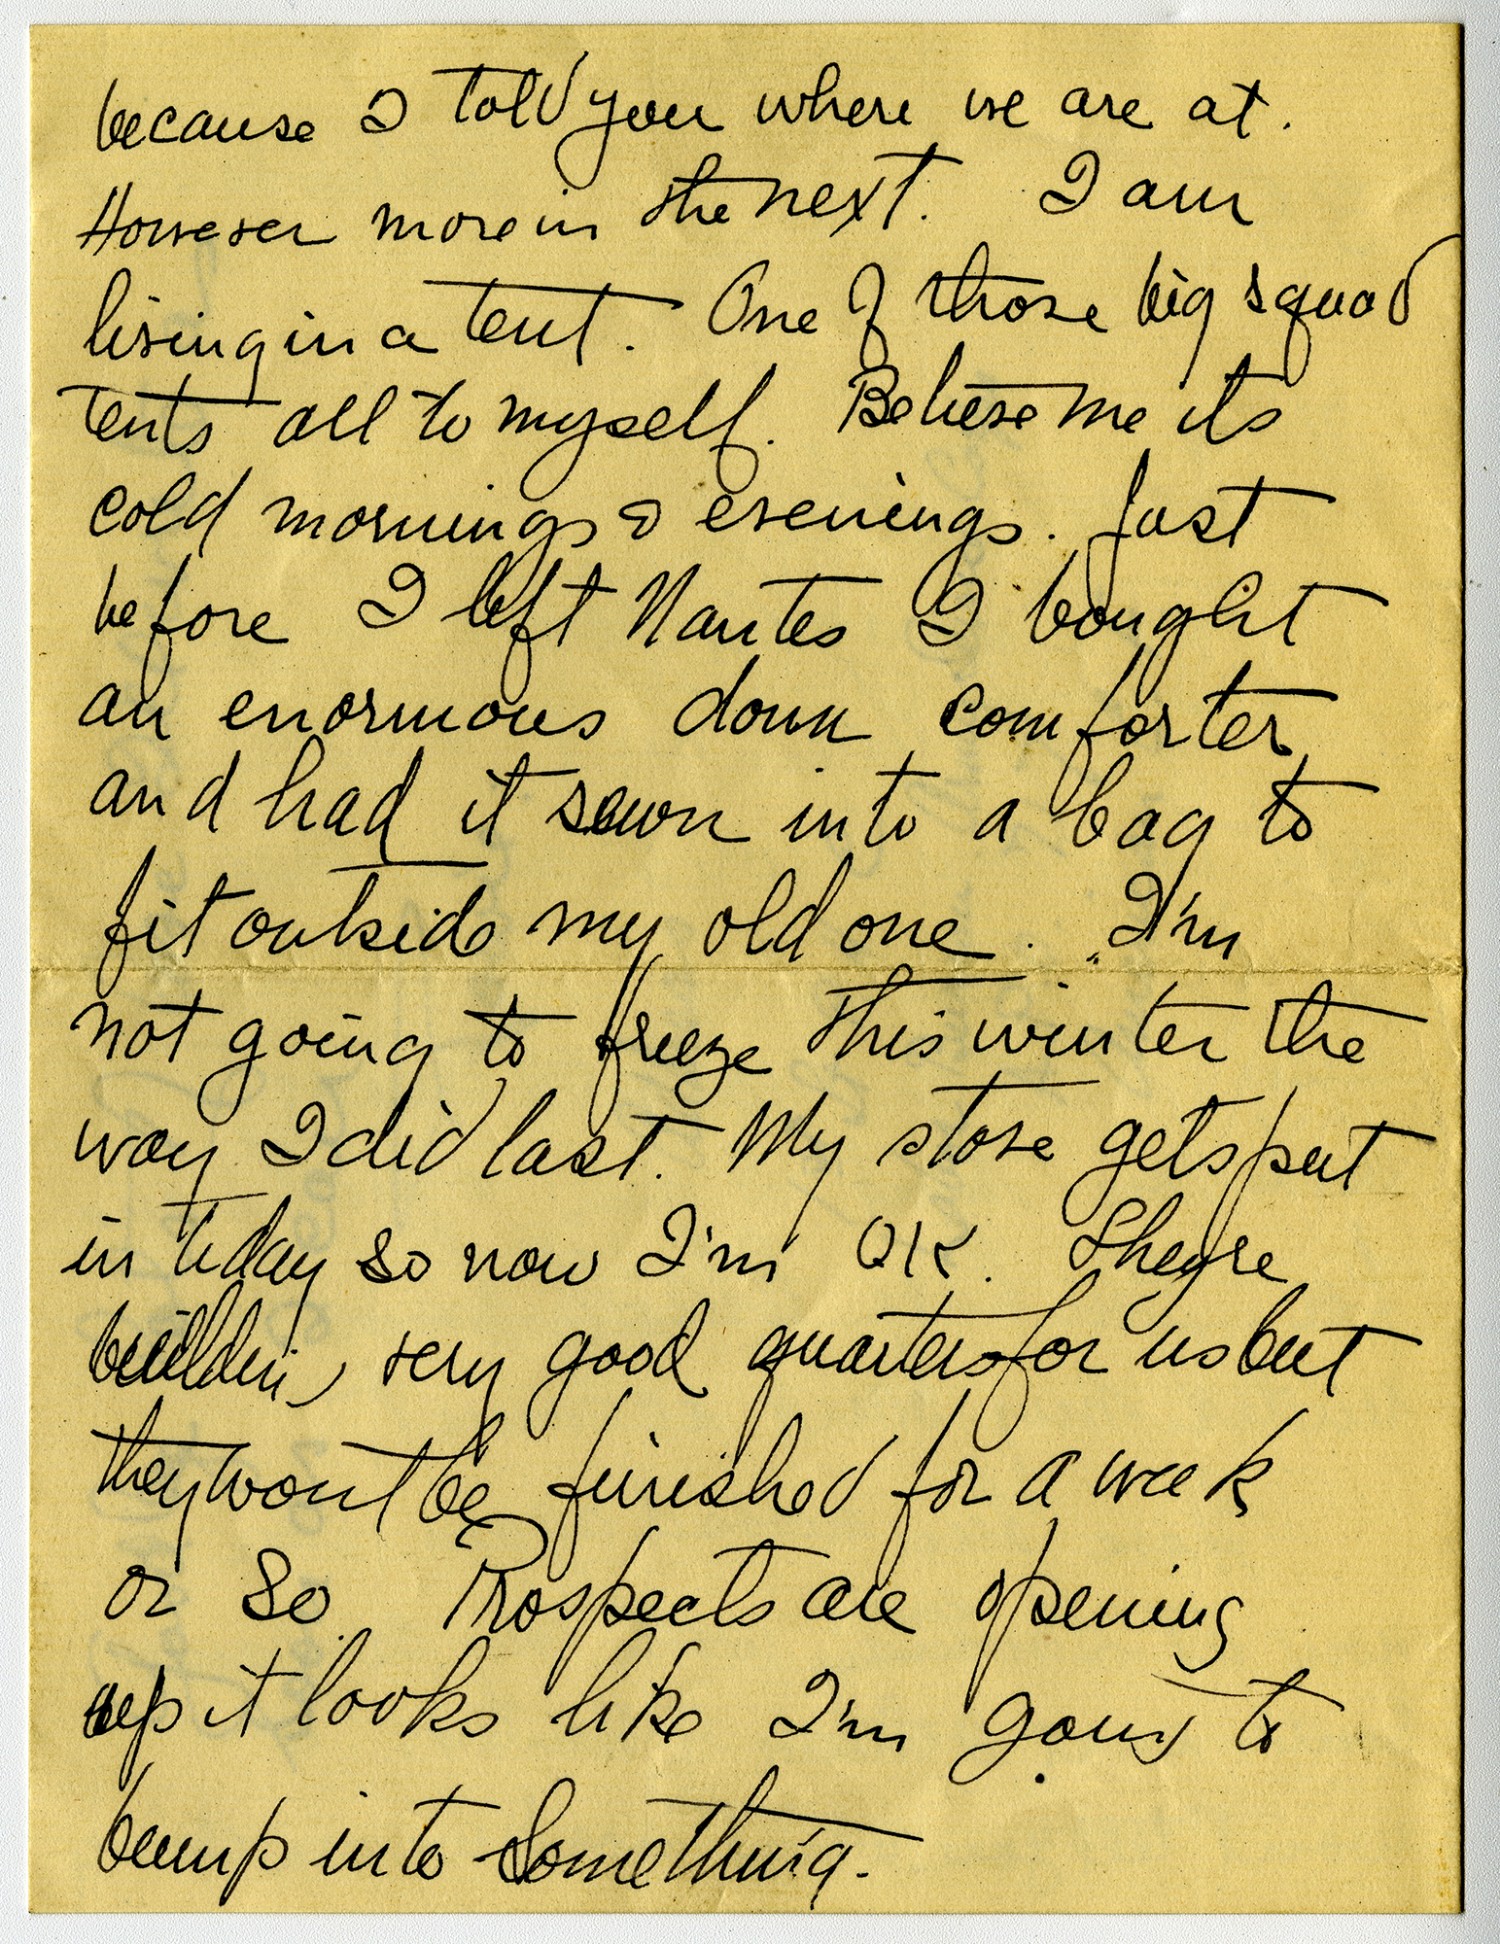 because I told you where we are at.
However more in the next. I am
living in a tent. One of those big squad
tents all to myself. Believe me its
cold mornings & evenings. Just
before I left Nantes I bought
an enormous down comforter
and had it sewn into a bag to
fit outside my old one. I'm
not going to freeze this winter the
way I did last. My stove gets put
in today so now I'm OK. Theyre
building very good quarters for us but
they wont be finished for a week
or so. Prospects are opening
up it looks like I'm going to
bump into something.